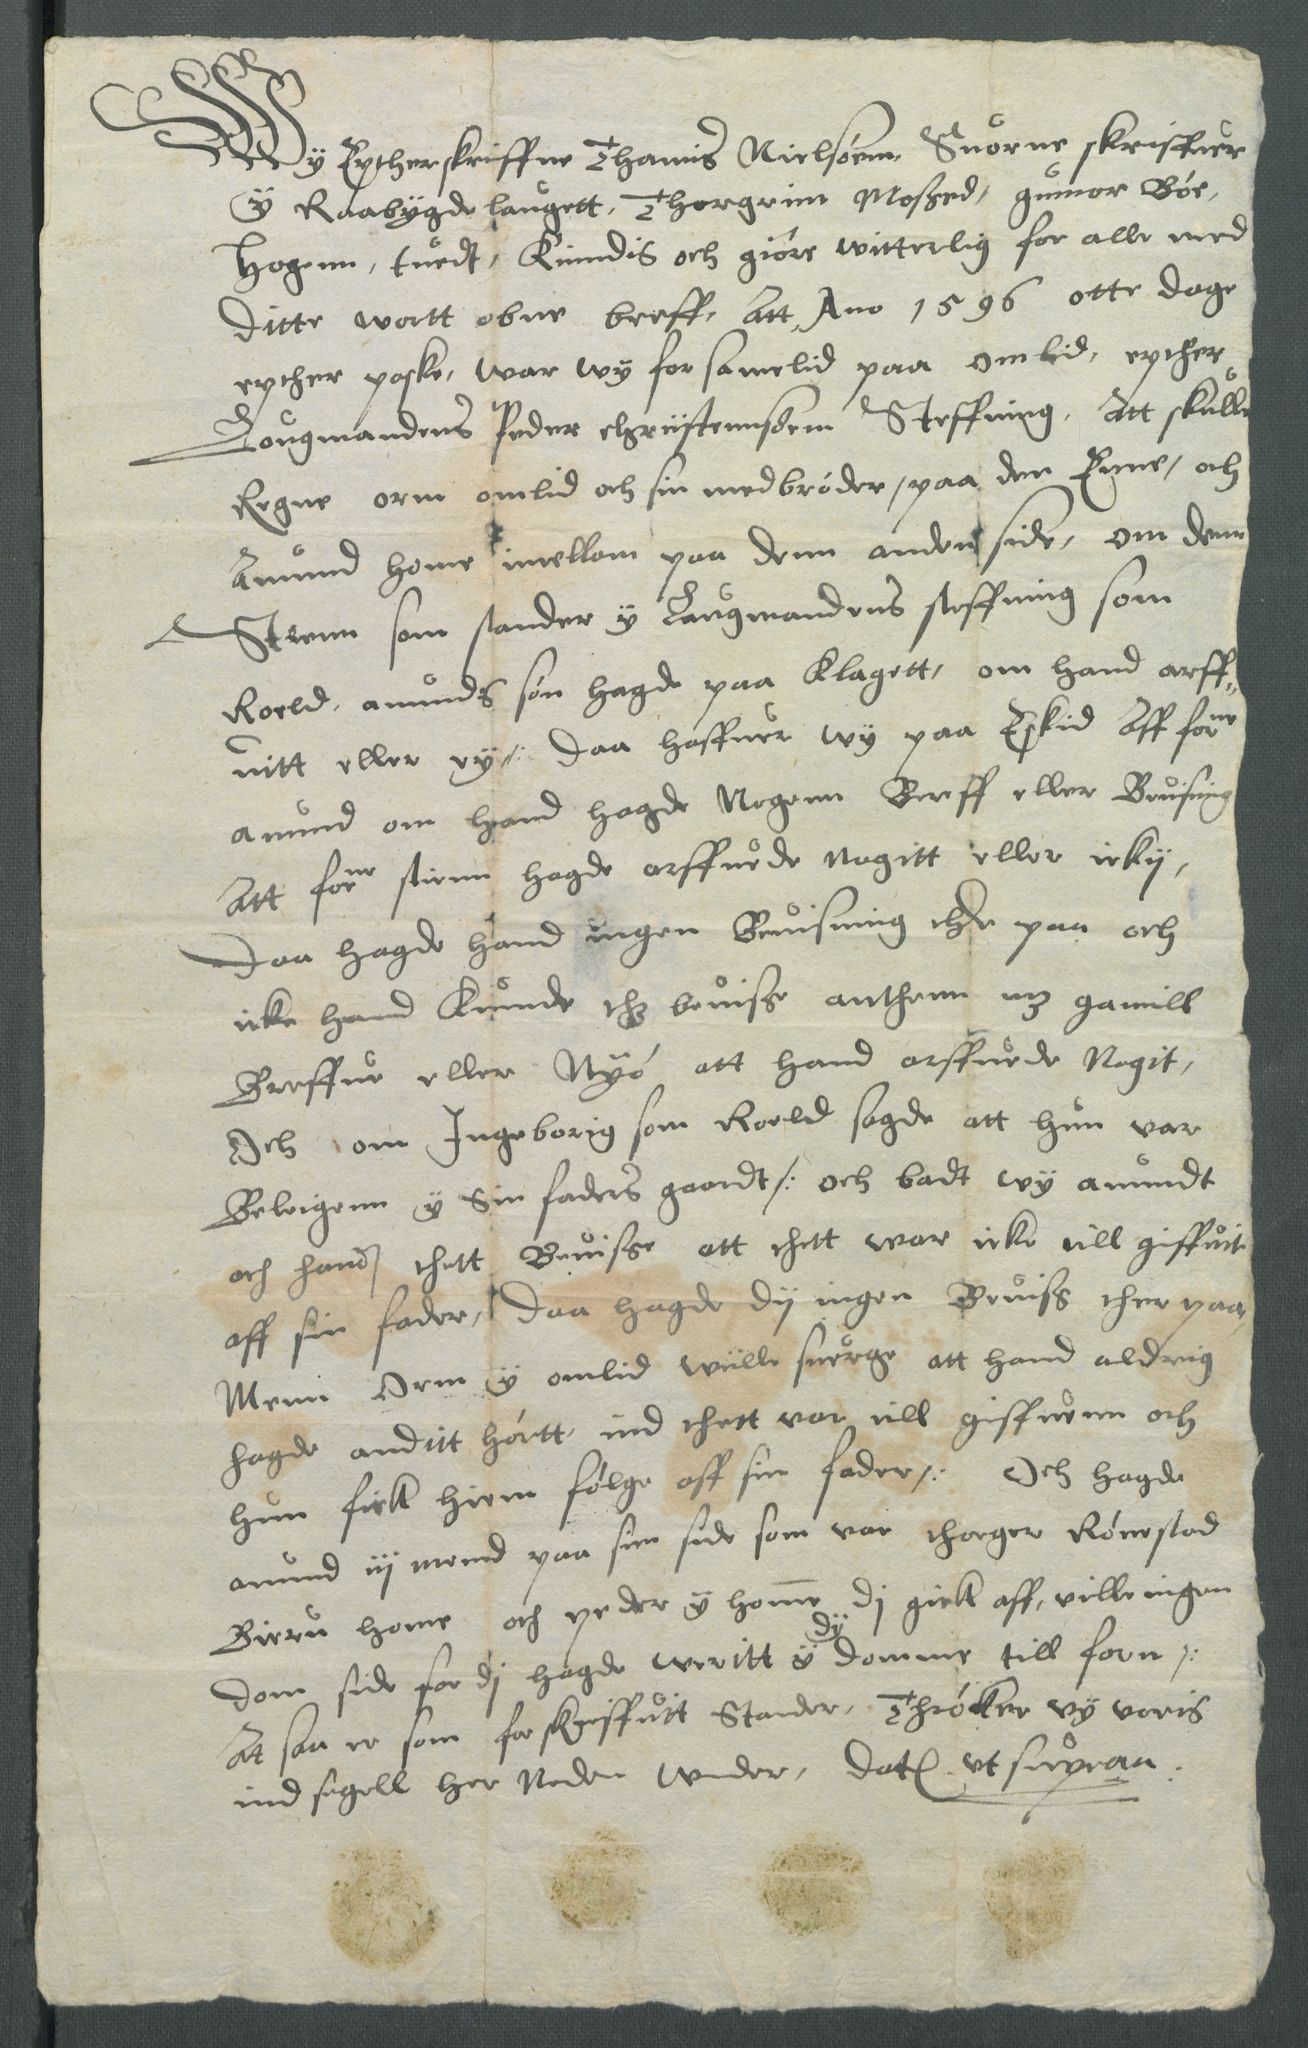 Wy Epther skriffne Thamis Nielsøenn Suorne skriffuer
y Raabygdelaugett, Thorgrim Moszed, gunnor Böe,
Hogenn, tuedt, Kiendis och giöre witterlig for alle med
ditte wortt obne breff, Att Ano 1596 otte dage
epther poske, war wy forsamelid paa omlid, epther
Lougmandens Peder chriistennsöenn Steffning, Att skulle
Regne orm omlid och sin medbröder, paa den Enne, och
Amund home imellom paa denn anden side, om denn
Stienn som stander y Laugmandens steffning som
Roeld amunds sön hagde paa klagett, om hand arff„
uitt eller ey ⁒ daa haffuer wy paa Eskid Aff forne
amund om hand hagde Nogenn Breff eller Beuisning
Att forne stienn hagde arffuede nogitt eller icky,
Daa hagde hand ingen Beuisning ther paa och
icke hand kunde thz beuisze anthenn mz gamill
Breffue eller Nyö att hand arffuede Nogit,
Och om Ingeborig som Roeld sagde att hun var
Beleigenn y sin faders gaardt ⁒ och badt wy amundt
och hans thett Beuisze att thett war icke till giffuit
aff sin fader, Daa hagde dy ingen Beuisz ther paa,
Menn Orm y omlid wille suerge att hand aldrig
hagde anditt hörtt, ind thett var till giffuenn och
hun fick hiem fölge aff sin fader ⁒ Och hagde
amund iij mend paa sin side som var thorger Rönestad
Biern home och peder y home dj gick aff, ville ingen
dom side for dj hagde weritt y dy domme till forn ⁒
At saa er som forskriffuitt Stander, Thröcker wy voris
indsegell her Neden wnder, Dat vt supraa